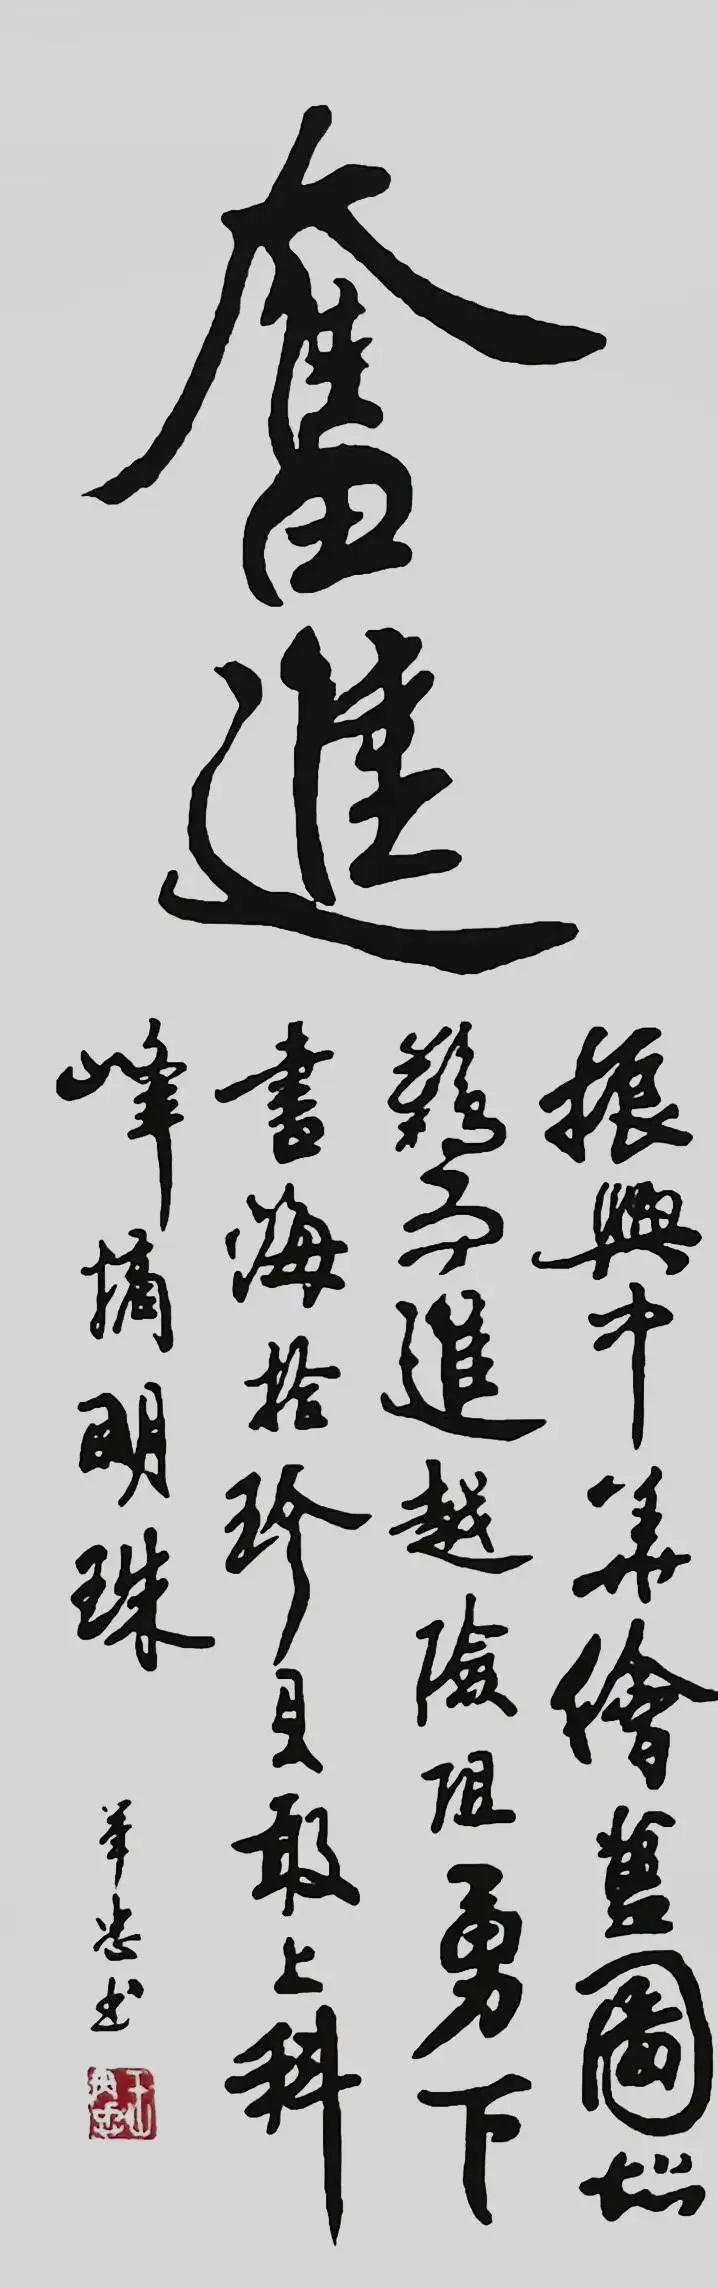 奮進
振興中華繪藍圖知
難而進越險阻勇下
書海拾珍貝敢上科
峰摘明珠
華忠书